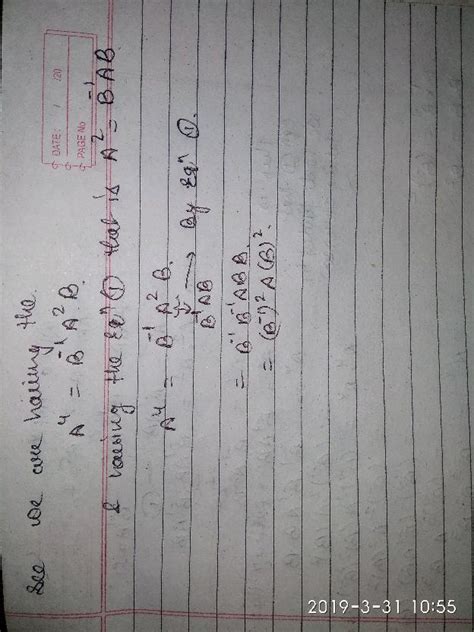 DATE: / /20
PAGE No
See we are having the
A⁴ = B⁻¹A²B.
& having the Eqⁿ ① that is A² = B⁻¹AB
A⁴ = B⁻¹ A² B.
B⁻¹AB → By Eqⁿ ①.
= B⁻¹ B⁻¹ABB.
= (B⁻¹)² A(B)².
2019-3-31 10:55